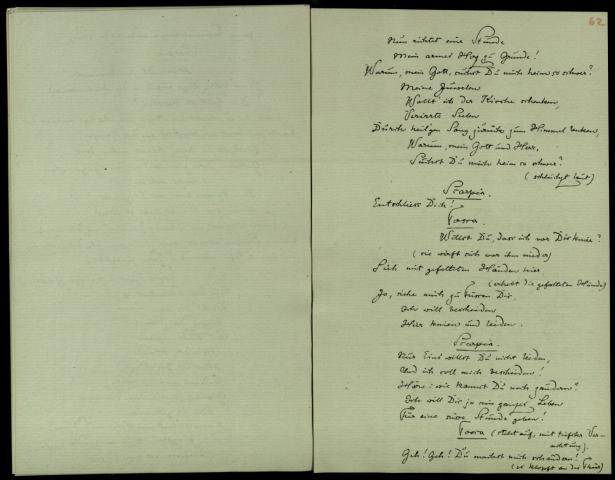 62
Nun richtet eine Stunde
Mein armes Herz zu Grunde!
Warum, mein Gott, suchst Du mich heim so schwer?
Meine Juwelen
Wollt' ich der Kirche schenken,
Verirrte Seelen
Durch heil'gen Sang zurück zum Himmel lenken,
Warum, mein Gott und Herr,
Suchst Du mich heim so schwer?
(schluchzt laut)
Scarpia.
Entschliess Dich!
Tosca.
Willst Du, dass ich vor Dir kniee?
(sie wirft sich vor ihm nieder)
Sieh mit gefalteten Händen hier
(erhebt die gefalteten Hände)
Ja, siehe mich zu Füssen Dir.
Ich will bescheiden
Hier knieen und leiden.
Scarpia.
Nur Eins willst Du nicht leiden,
Und ich soll mich bescheiden!
Höre: wie kannst Du noch zaudern?
Ich will Dir ja ein ganzes Leben
Für eine süsse Stunde geben!
Tosca (steht auf, mit tiefster Ver-
achtung).
Geh! Geh! Du machst mich schaudern!
(es klopft an die Thür)